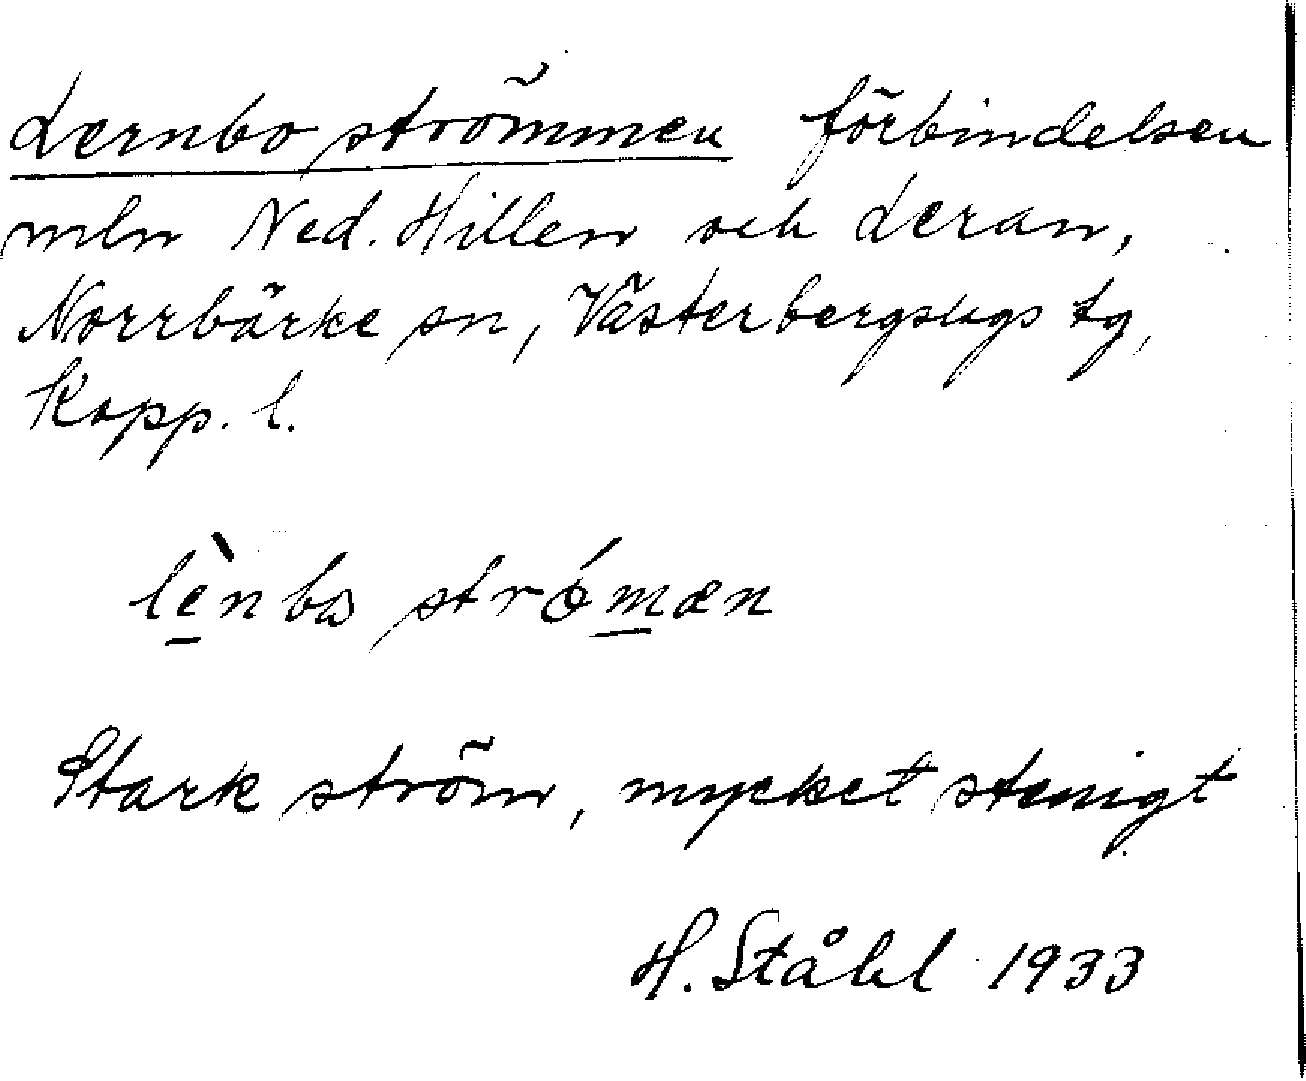 Lernbo strömmen förbindelsen
mln Ned. Hillen och Leran,
Norrbärke sn, Västerbergslags tg,
Kopp. l.
lènbω strǿmæn
Stark ström, mycket stenigt
H. Ståhl 1933